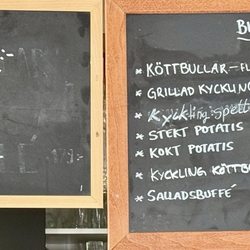 * KÖTTBULLAR-FL
* GRILLAD KYCKLING
* Kycklingspett
* STEKT POTATIS
* KOKT POTATIS
* KYCKLING KÖTTBU
* SALLADSBUFFÉ